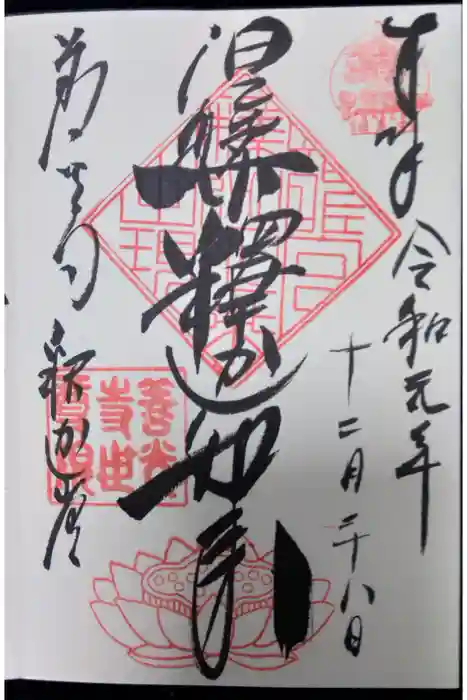 奉拝 令和元年
十二月二十八日
涅槃釋迦如来
善光寺 釈迦堂
善光
寺世
尊院